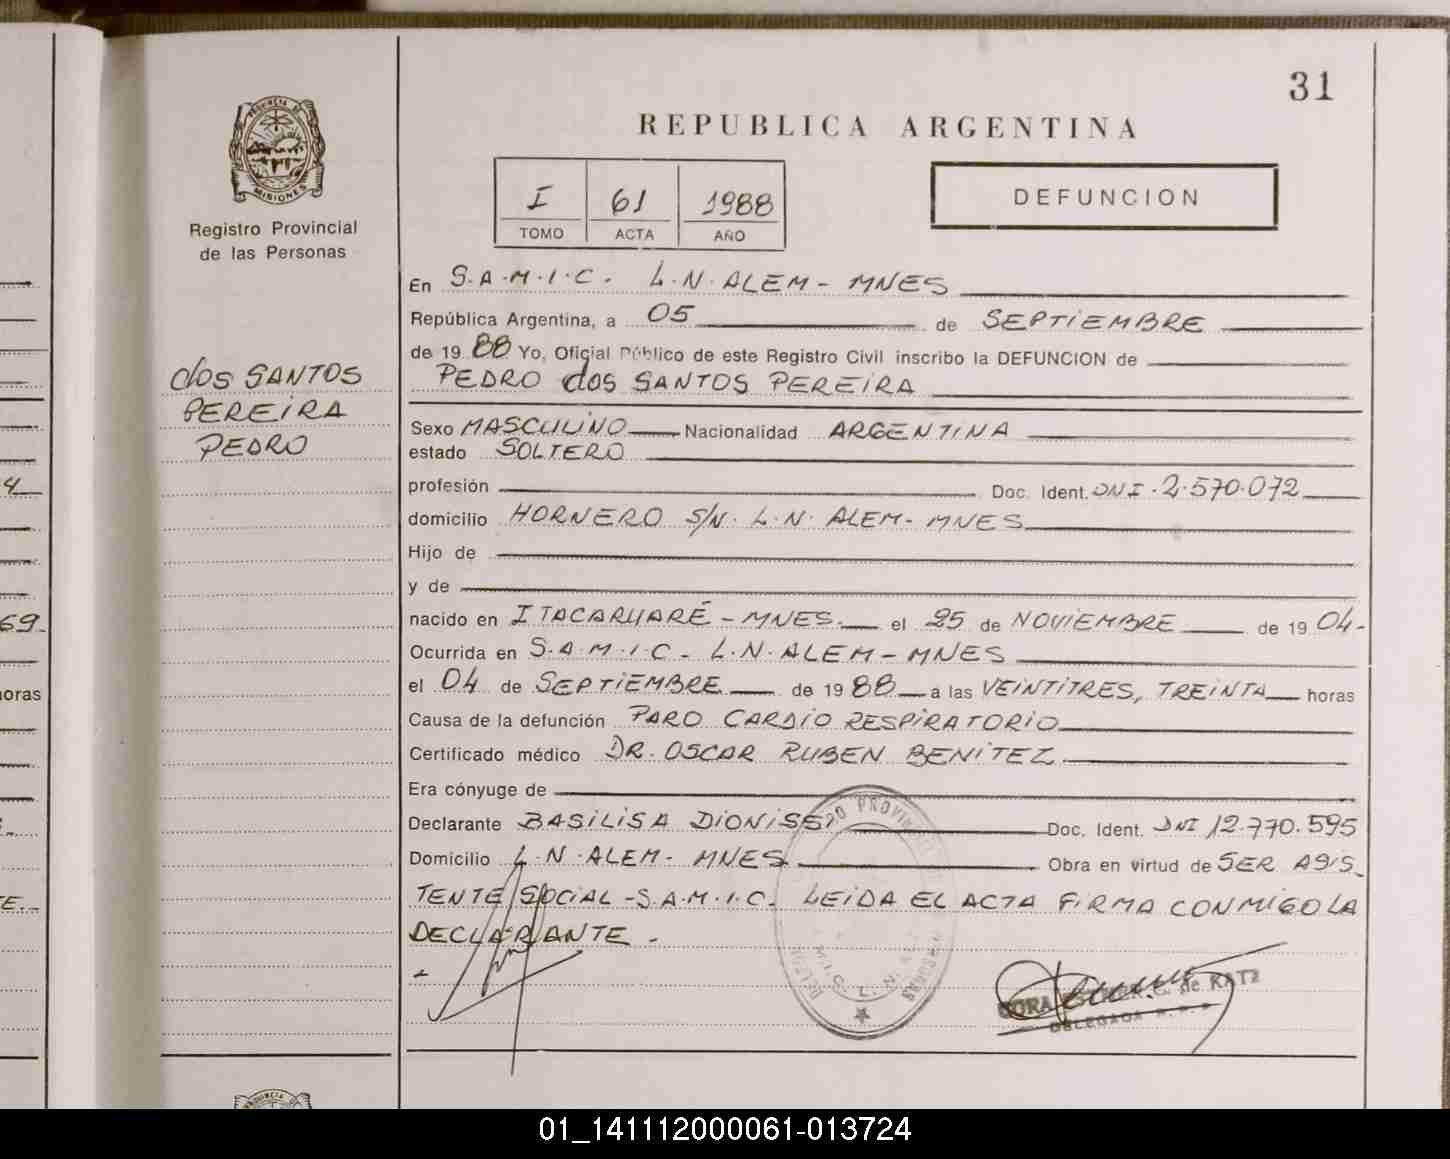 31
REPUBLICA ARGENTINA
PROVINCIA DE MISIONES
Registro Provincial
de las Personas
I 61 1988
TOMO ACTA AÑO
DEFUNCION
dos SANTOS
PEREIRA
PEDRO
En S.A.M.I.C. L.N.ALEM - MNES
República Argentina, a 05 de SEPTIEMBRE
de 1988 Yo, Oficial Público de este Registro Civil inscribo la DEFUNCION de
PEDRO dos SANTOS PEREIRA
Sexo MASCULINO Nacionalidad ARGENTINA
estado SOLTERO
profesión Doc. Ident. DNI. 2.570.072
domicilio HORNERO S/N. L.N. ALEM - MNES
Hijo de
y de
nacido en ITACARUARÉ - MNES. el 25 de NOVIEMBRE de 1904-
Ocurrida en S.A.M.I.C - L.N.ALEM - MNES
el 04 de SEPTIEMBRE de 1988 a las VEINTITRES, TREINTA horas
Causa de la defunción PARO CARDIO RESPIRATORIO
Certificado médico DR. OSCAR RUBEN BENITEZ
Era cónyuge de
Declarante BASILISA DIONISSI Doc. Ident. DNI 12.770.595
Domicilio L.N.ALEM - MNES Obra en virtud de SER ASIS
TENTE SOCIAL - S.A.M.I.C. LEIDA EL ACTA FIRMA CONMIGO LA
DECLARANTE.
de KATZ
DELEGADA
4
69
horas
01_141112000061-013724